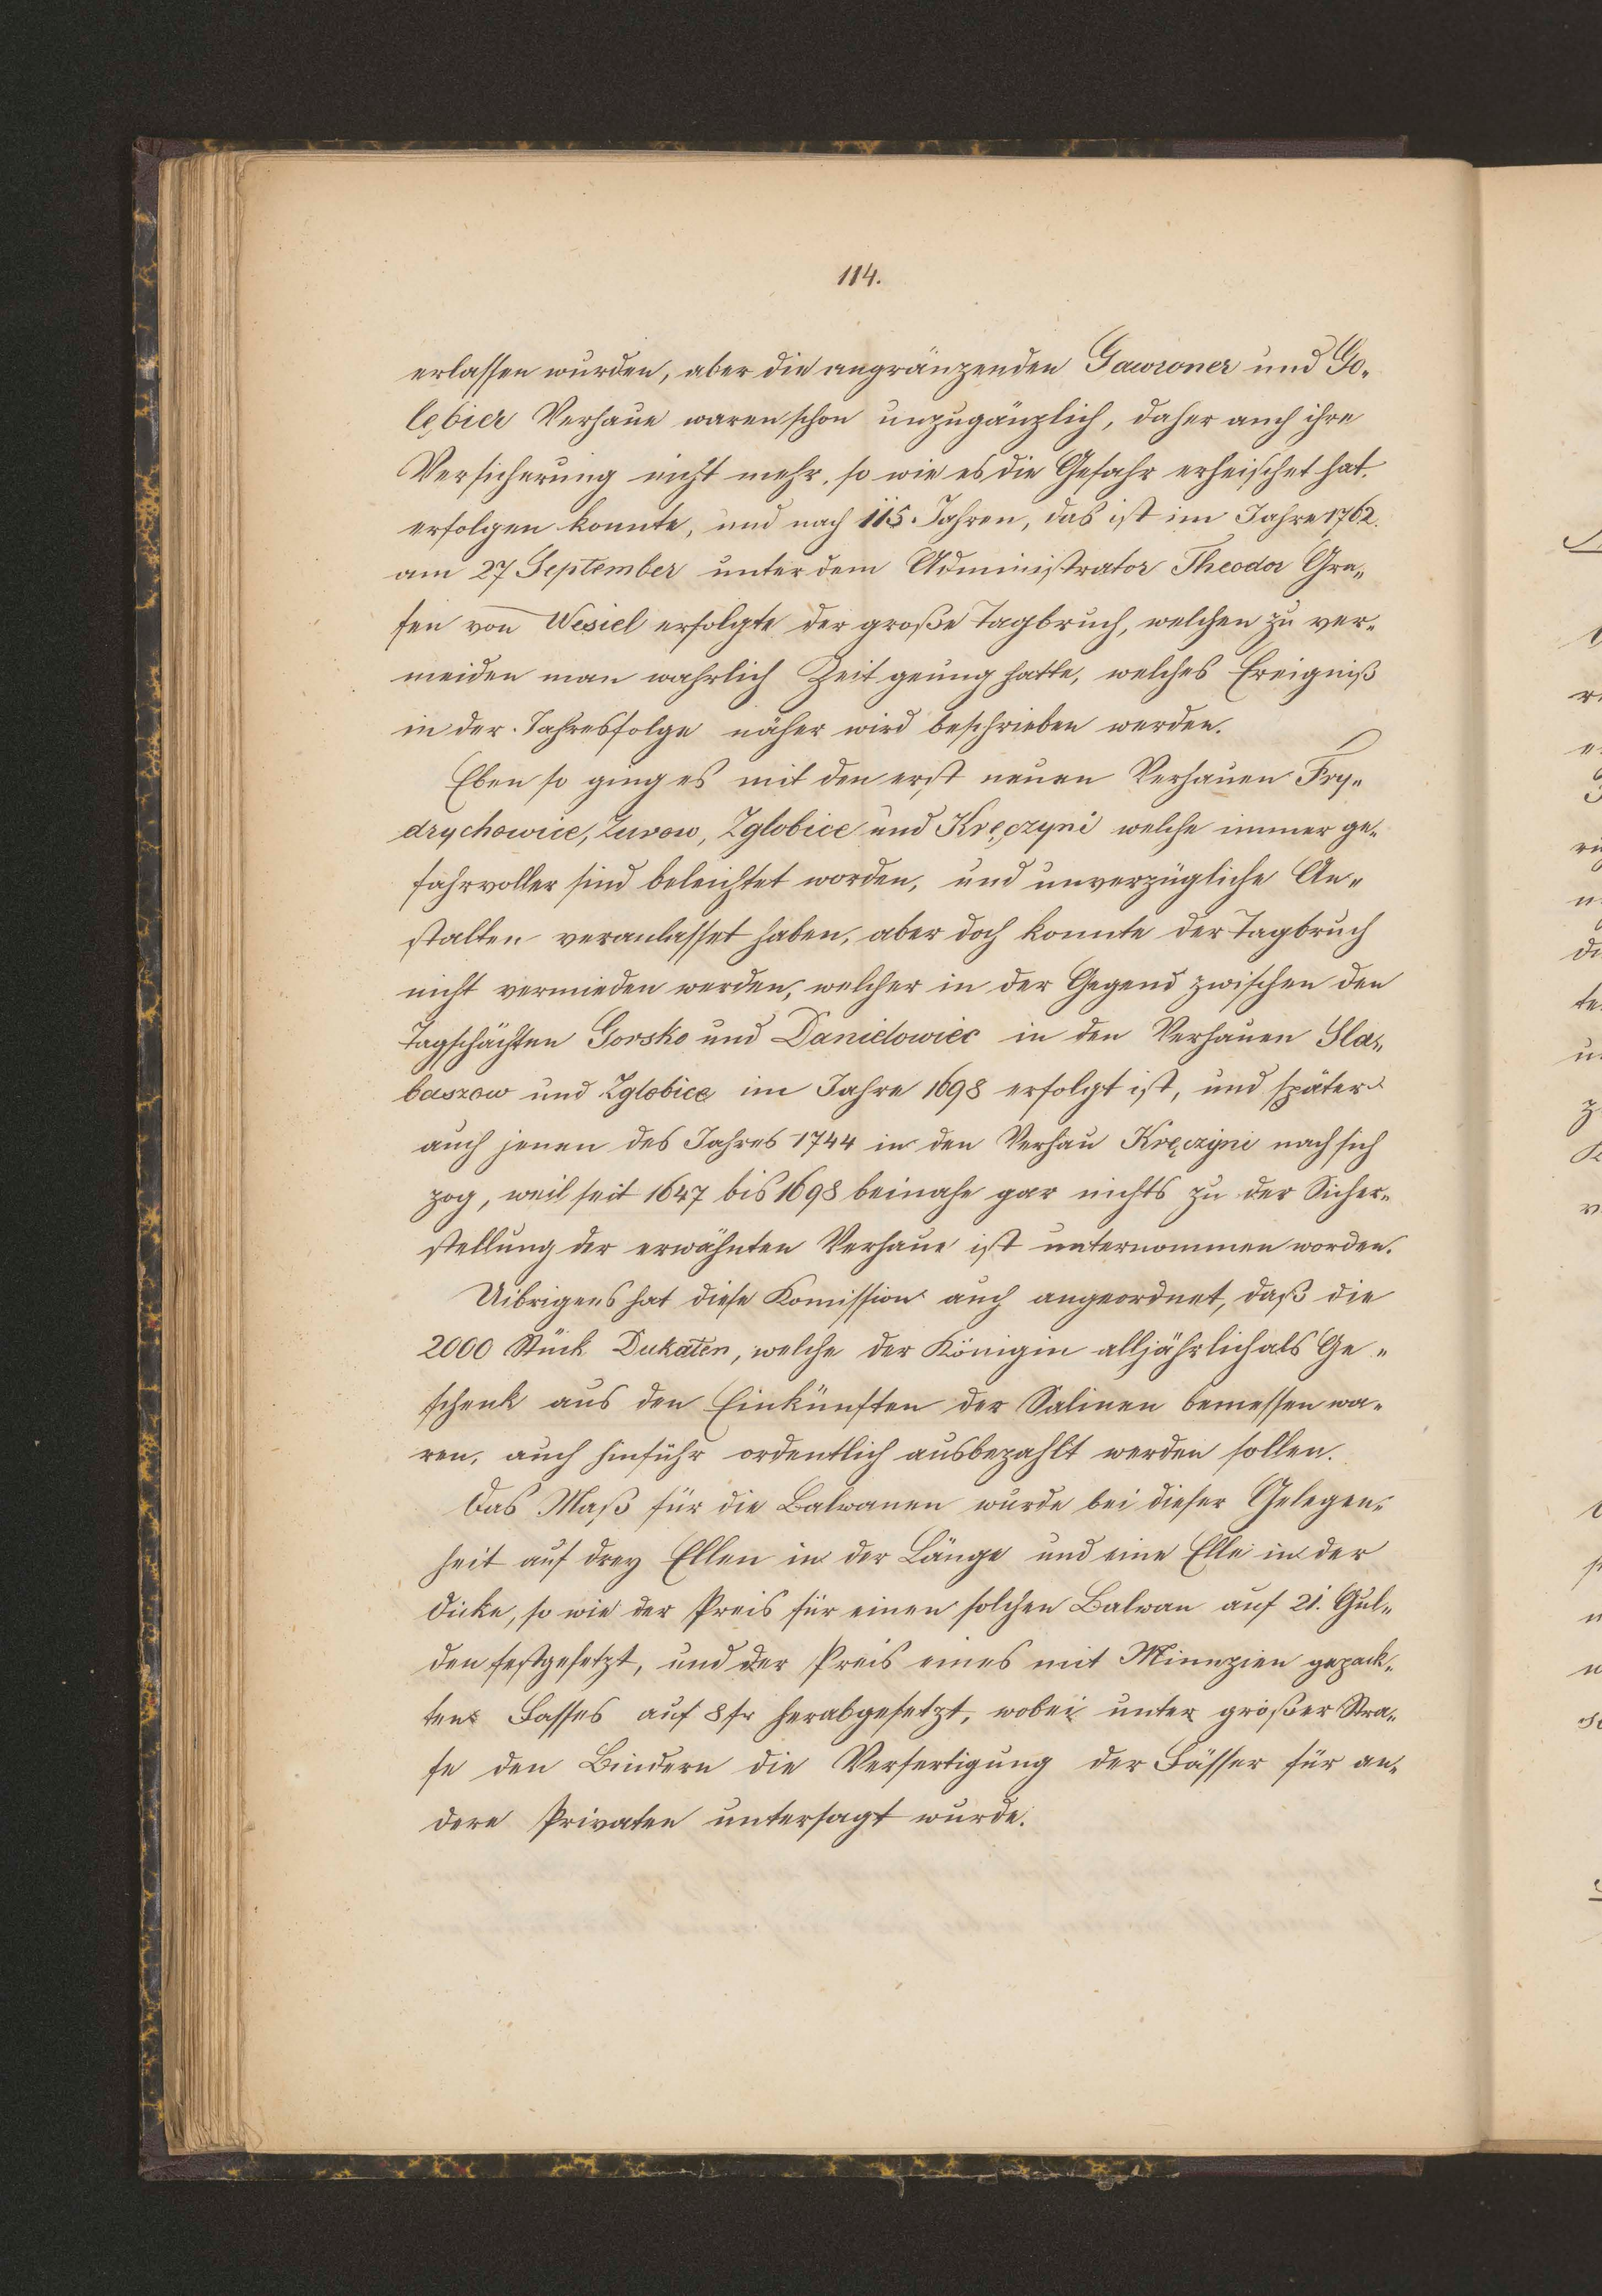 114.
erlassen wurden, aber die angränzenden Gawroner und Go„
lębier Verhaue waren schon unzugänglich, daher auch ihre
Versicherung nicht mehr, so wie es die Gefahr erheischet hat.
erfolgen konnte, und nach 115. Jahren, das ist im Jahre 1762.
am 27 September unter dem Administrator Theodor Gra„
fen von Wesiel erfolgte der große Tagbruch, welchen zu ver„
meiden man wahrlich Zeit genug hatte, welches Ereigniß
in der Jahresfolge näher wird beschrieben werden.
Eben so ging es mit den erst neuen Verhauen Fry„
drychowice, Zurow, Zglobice und Kręczyni welche immer ge„
fahrvoller sind beleichtet worden, und unverzügliche An„
stalten veranlasset haben, aber doch konnte der Tagbruch
nicht vermieden werden, welcher in der Gegend zwischen den
Tagschächten Gorsko und Danielowiec in den Verhauen Sla„
baszow und Zglobice im Jahre 1698 erfolgt ist, und später
auch jenen des Jahres 1744 in den Verhau Kręczyni nach sich
zog, weil seit 1647 bis 1698 beinahe gar nichts zu der Sicher„
stellung der erwähnten Verhaue ist unternommen worden.
Uibrigens hat diese Komission auch angeordnet, daß die
2000 Stück Dukaten, welche der Königin alljährlich als Ge„
schenk aus den Einkünften der Salinen bemessen wa„
ren, auch hinführ ordentlich ausbezahlt werden sollen.
Das Maß für die Balwanen wurde bei dieser Gelegen„
heit auf drey Ellen in der Länge und eine Elle in der
Dicke, so wie der Preis für einen solchen Balwan auf 21. Gul„
den festgesetzt, und der Preis eines mit Minuzien gepack„
tens Fasses auf 8 fr herabgesetzt, wobei unter großer Stra„
fe den Bindern die Verfertigung der Fässer für an„
dere Privaten untersagt wurde.